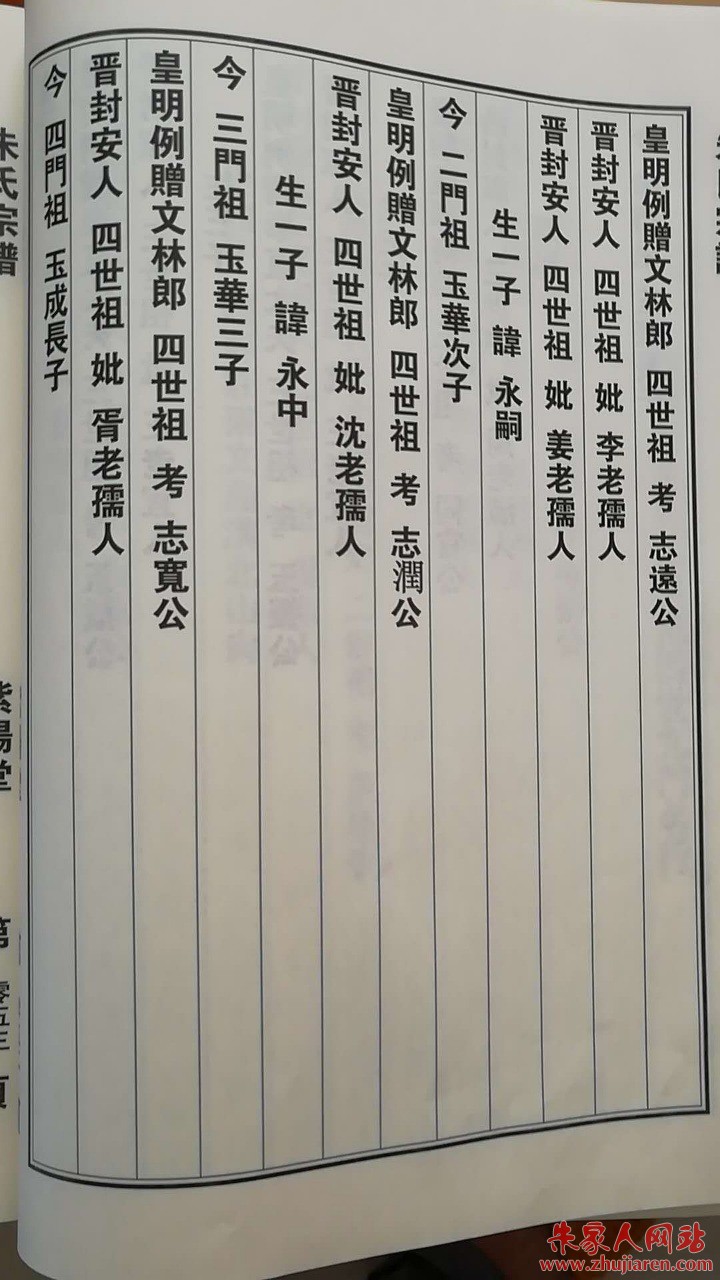 皇明例贈文林郎 四世祖 考 志遠公
晋封安人 四世祖 妣 李老孺人
晋封安人 四世祖 妣 姜老孺人
生一子 諱 永嗣
今 二門祖 玉華次子
皇明例贈文林郎 四世祖 考 志潤公
晋封安人 四世祖 妣 沈老孺人
生一子 諱 永中
今 三門祖 玉華三子
皇明例贈文林郎 四世祖 考 志寬公
晋封安人 四世祖 妣 胥老孺人
今 四門祖 玉成長子
朱氏宗譜 紫陽堂 第 零五三 頁
朱家人网站
www.zhujiaren.com